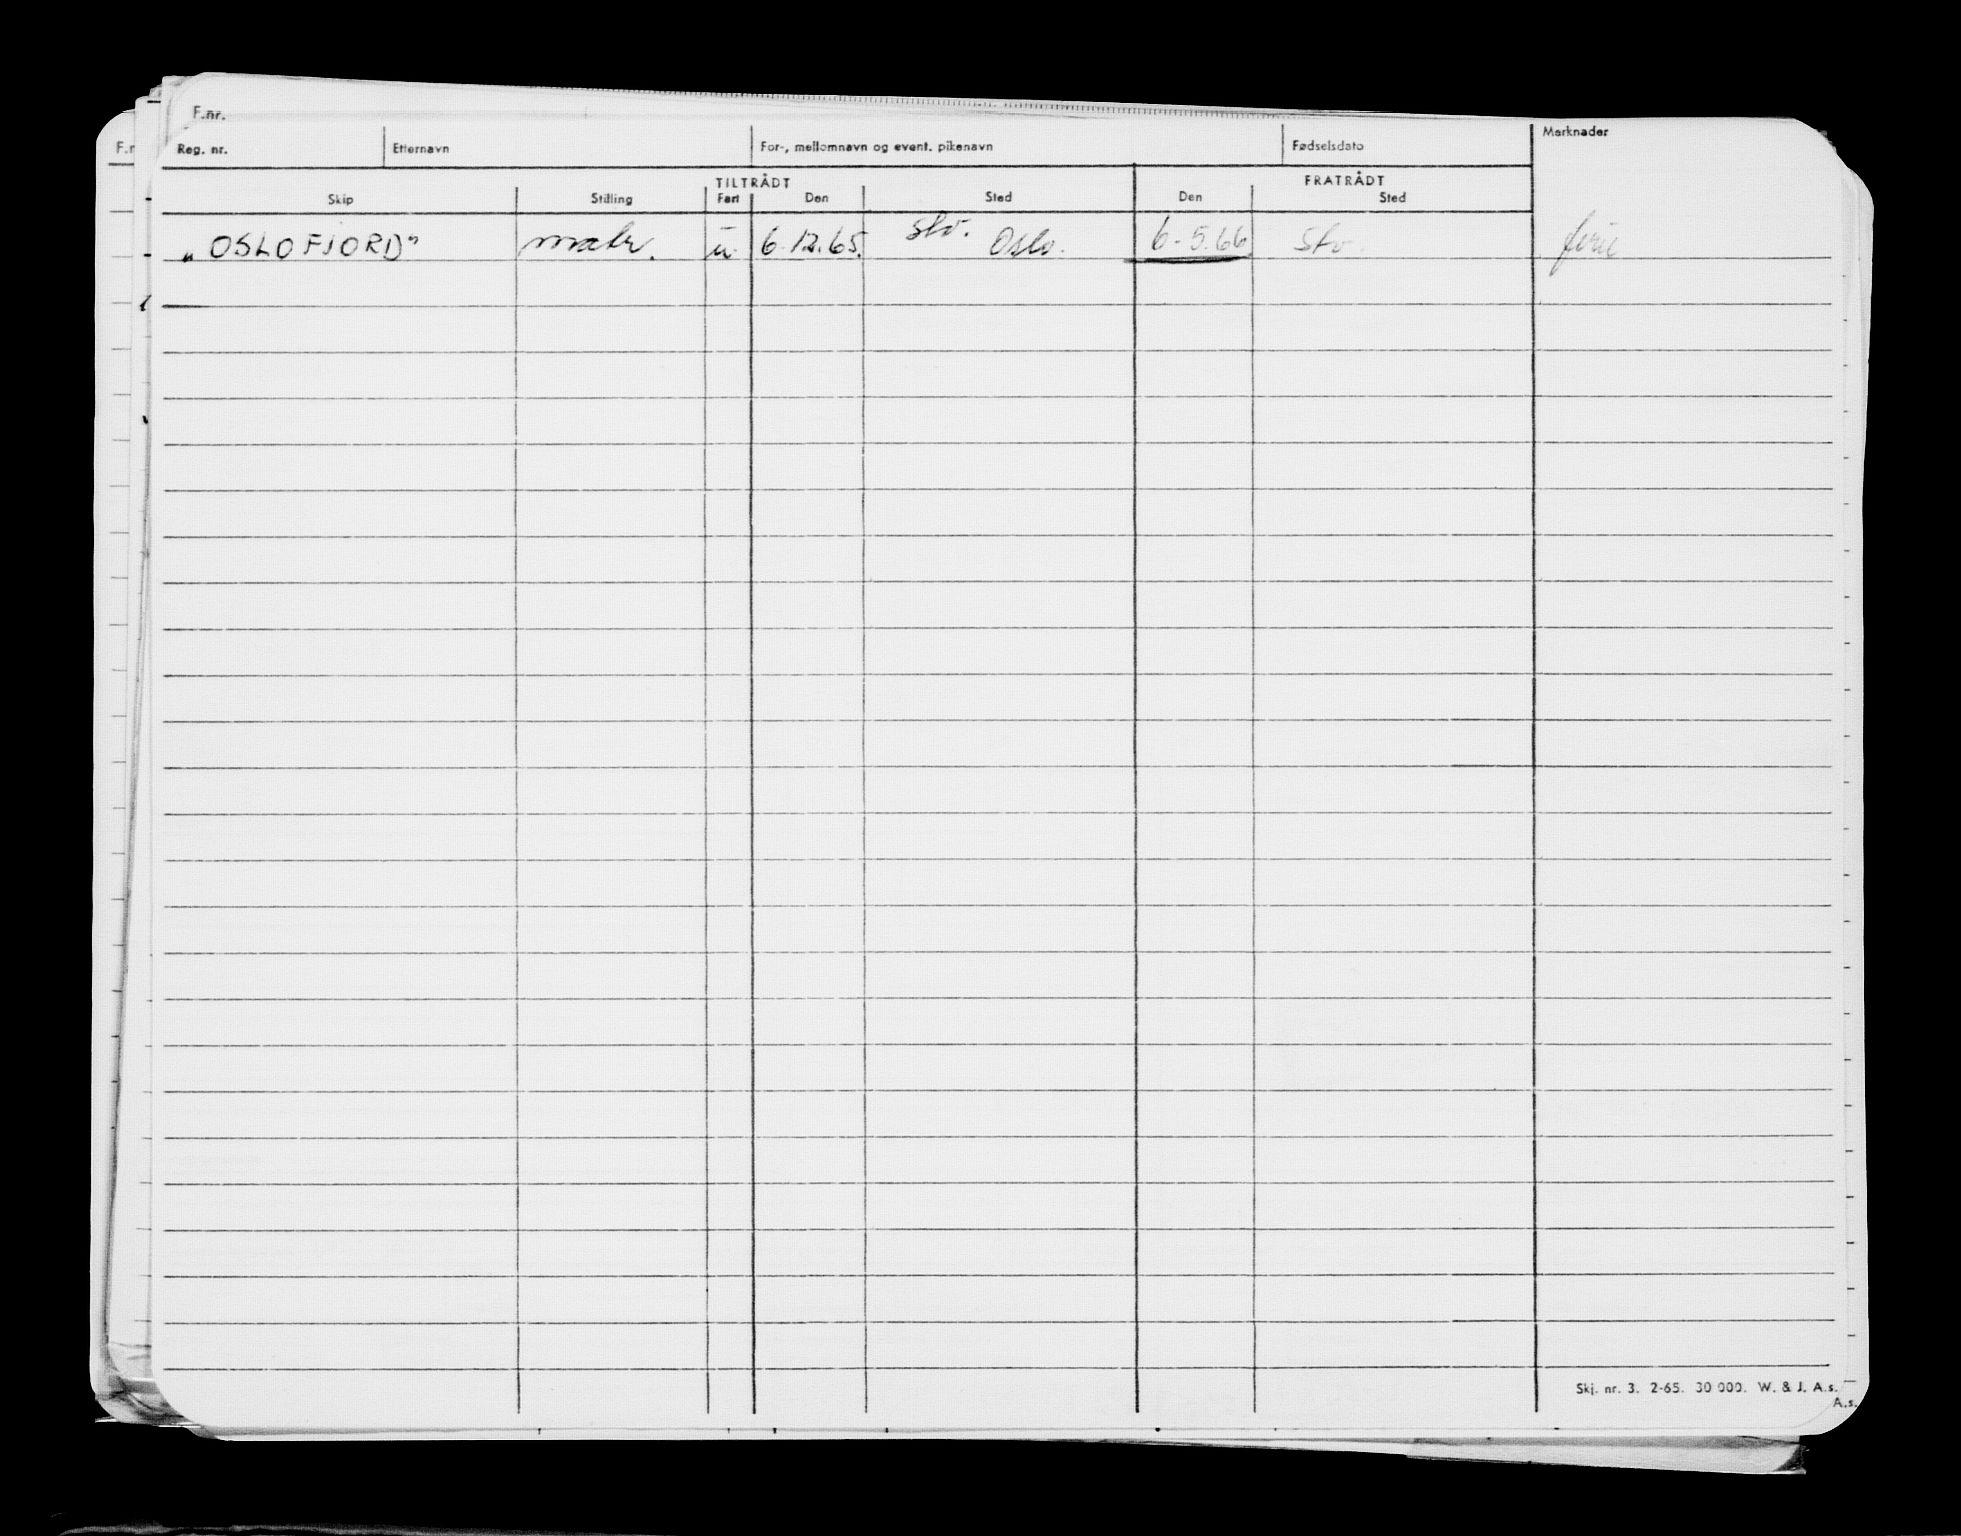 F.nr.
F.r
Reg. nr. Etternavn For-, mellomnavn og event. pikenavn Fødselsdato Merknader
TILTRÅDT FRATRÅDT
Skip Stilling Fart Den Sted Den Sted
„OSLOFJORD" matr. u 6.12.65. stv. Oslo. 6-5.66 Stv. ferie
Skj. nr. 3. 2-65. 30 000. W. & J. A.s.
A.s.